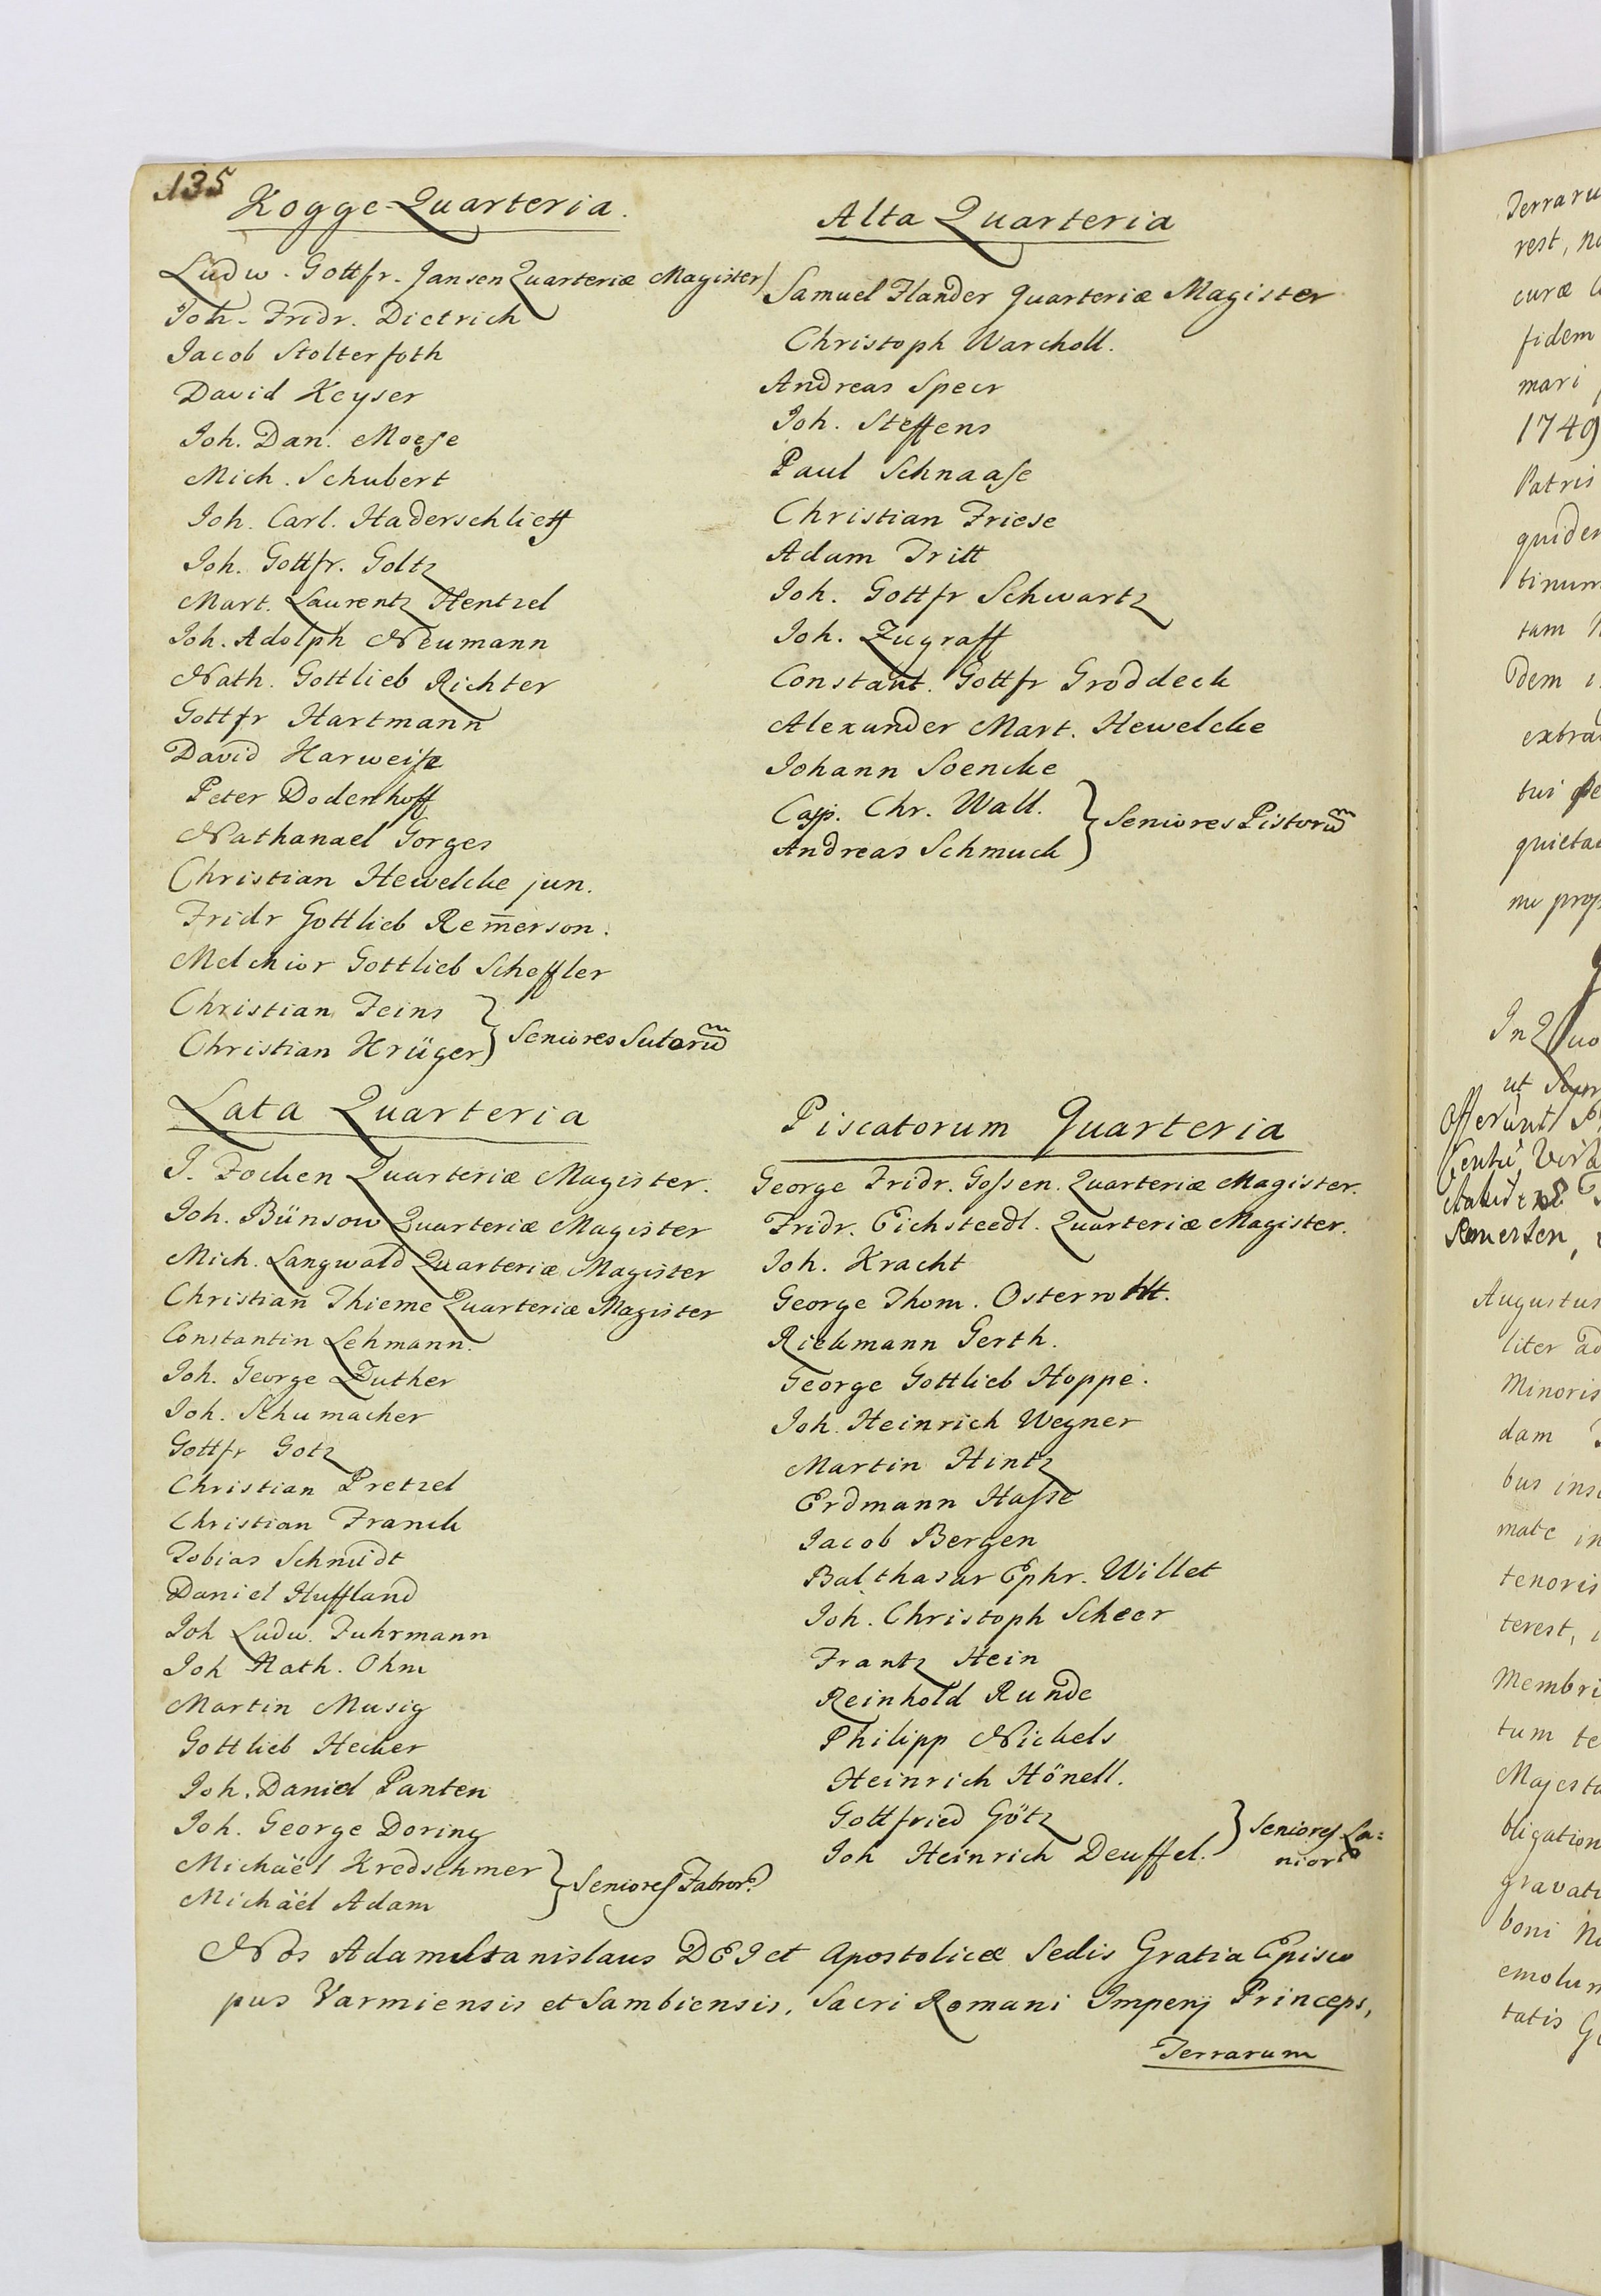 135
Kogge-Quarteria.
Ludw. Gottfr. Jansen Quarteriæ Magister
Joh. Fridr. Dietrich
Jacob Stolterfoth
David Keyser
Joh. Dan. Moese
Mich. Schubert
Joh. Carl. Haderschlieff
Joh. Gottfr. Goltz
Mart. Laurentz Hentzel
Joh. Adolph Neumann
Nath. Gottlieb Richter
Gottfr Hartmann
David Harweise
Peter Dodenhoff
Nathanael Gorges
Christian Hewelcke jun.
Fridr Gottlieb Rem̄erson.
Melchior Gottlieb Scheffler
Christian Feins
Christian Krüger } Seniores Sutorum̃
Alta Quarteria
Samuel Flander quarteriæ Magister
Christoph Warcholl.
Andreas Speer
Joh. Steffens
Paul Schnaase
Christian Friese
Adam Tritt
Joh. Gottfr Schwartz
Joh. Zugraff
Constant. Gottfr Groddeck
Alexander Mart. Hewelcke
Johann Soencke
Casp. Chr. Wall.
Andreas Schmuck } Seniores Pistorum̃
Lata Quarteria
J. Focken Quarteriæ Magister.
Joh. Bünsow Quarteriæ Magister
Mich. Langwald Quarteriæ Magister
Christian Thieme Quarteriæ Magister
Constantin Lehmann.
Joh. George Zuther
Joh. Schumacher
Gottfr Gotz
Christian Pretzel
Christian Franck
Tobias Schmidt
Daniel Huffland
Joh Ludw. Fuhrmann
Joh Nath. Ohm
Martin Musig
Gottlieb Hecker
Joh. Daniel Panten
Joh. George Doring
Michäel Kredschmer
Michäel Adam } Seniores Fabror.
Piscatorum Quarteria
George Fridr. Gossen. Quarteriæ Magister.
Fridr. Eichsteedt. Quarteriæ Magister.
Joh. Kracht
George Thom.
Riekmann Gerth.
George Gottlieb Hoppe.
Joh. Heinrich Wegner
Martin Hintz
Erdmann Hasse
Jacob Bergen
Balthasar Ephr. Willet
Joh. Christoph Scheer
Frantz Hein
Reinhold Runde
Philipp Nickels
Heinrich Hönell.
Gottfried Götz
Joh Heinrich Deuffel. } Seniores La=
nior
Nos Adamus Stanislaus DEI et Apostolicæ Sedis Gratia Episco
pus Varmiensis et Sambiensis, Sacri Romani Imperij Princeps,
Terrarum
rest,
curæ
fidem
mari
1749
Patris
tam
dem
liter
Minoris
dam
tenoris
terest,
tum
boni
tatis